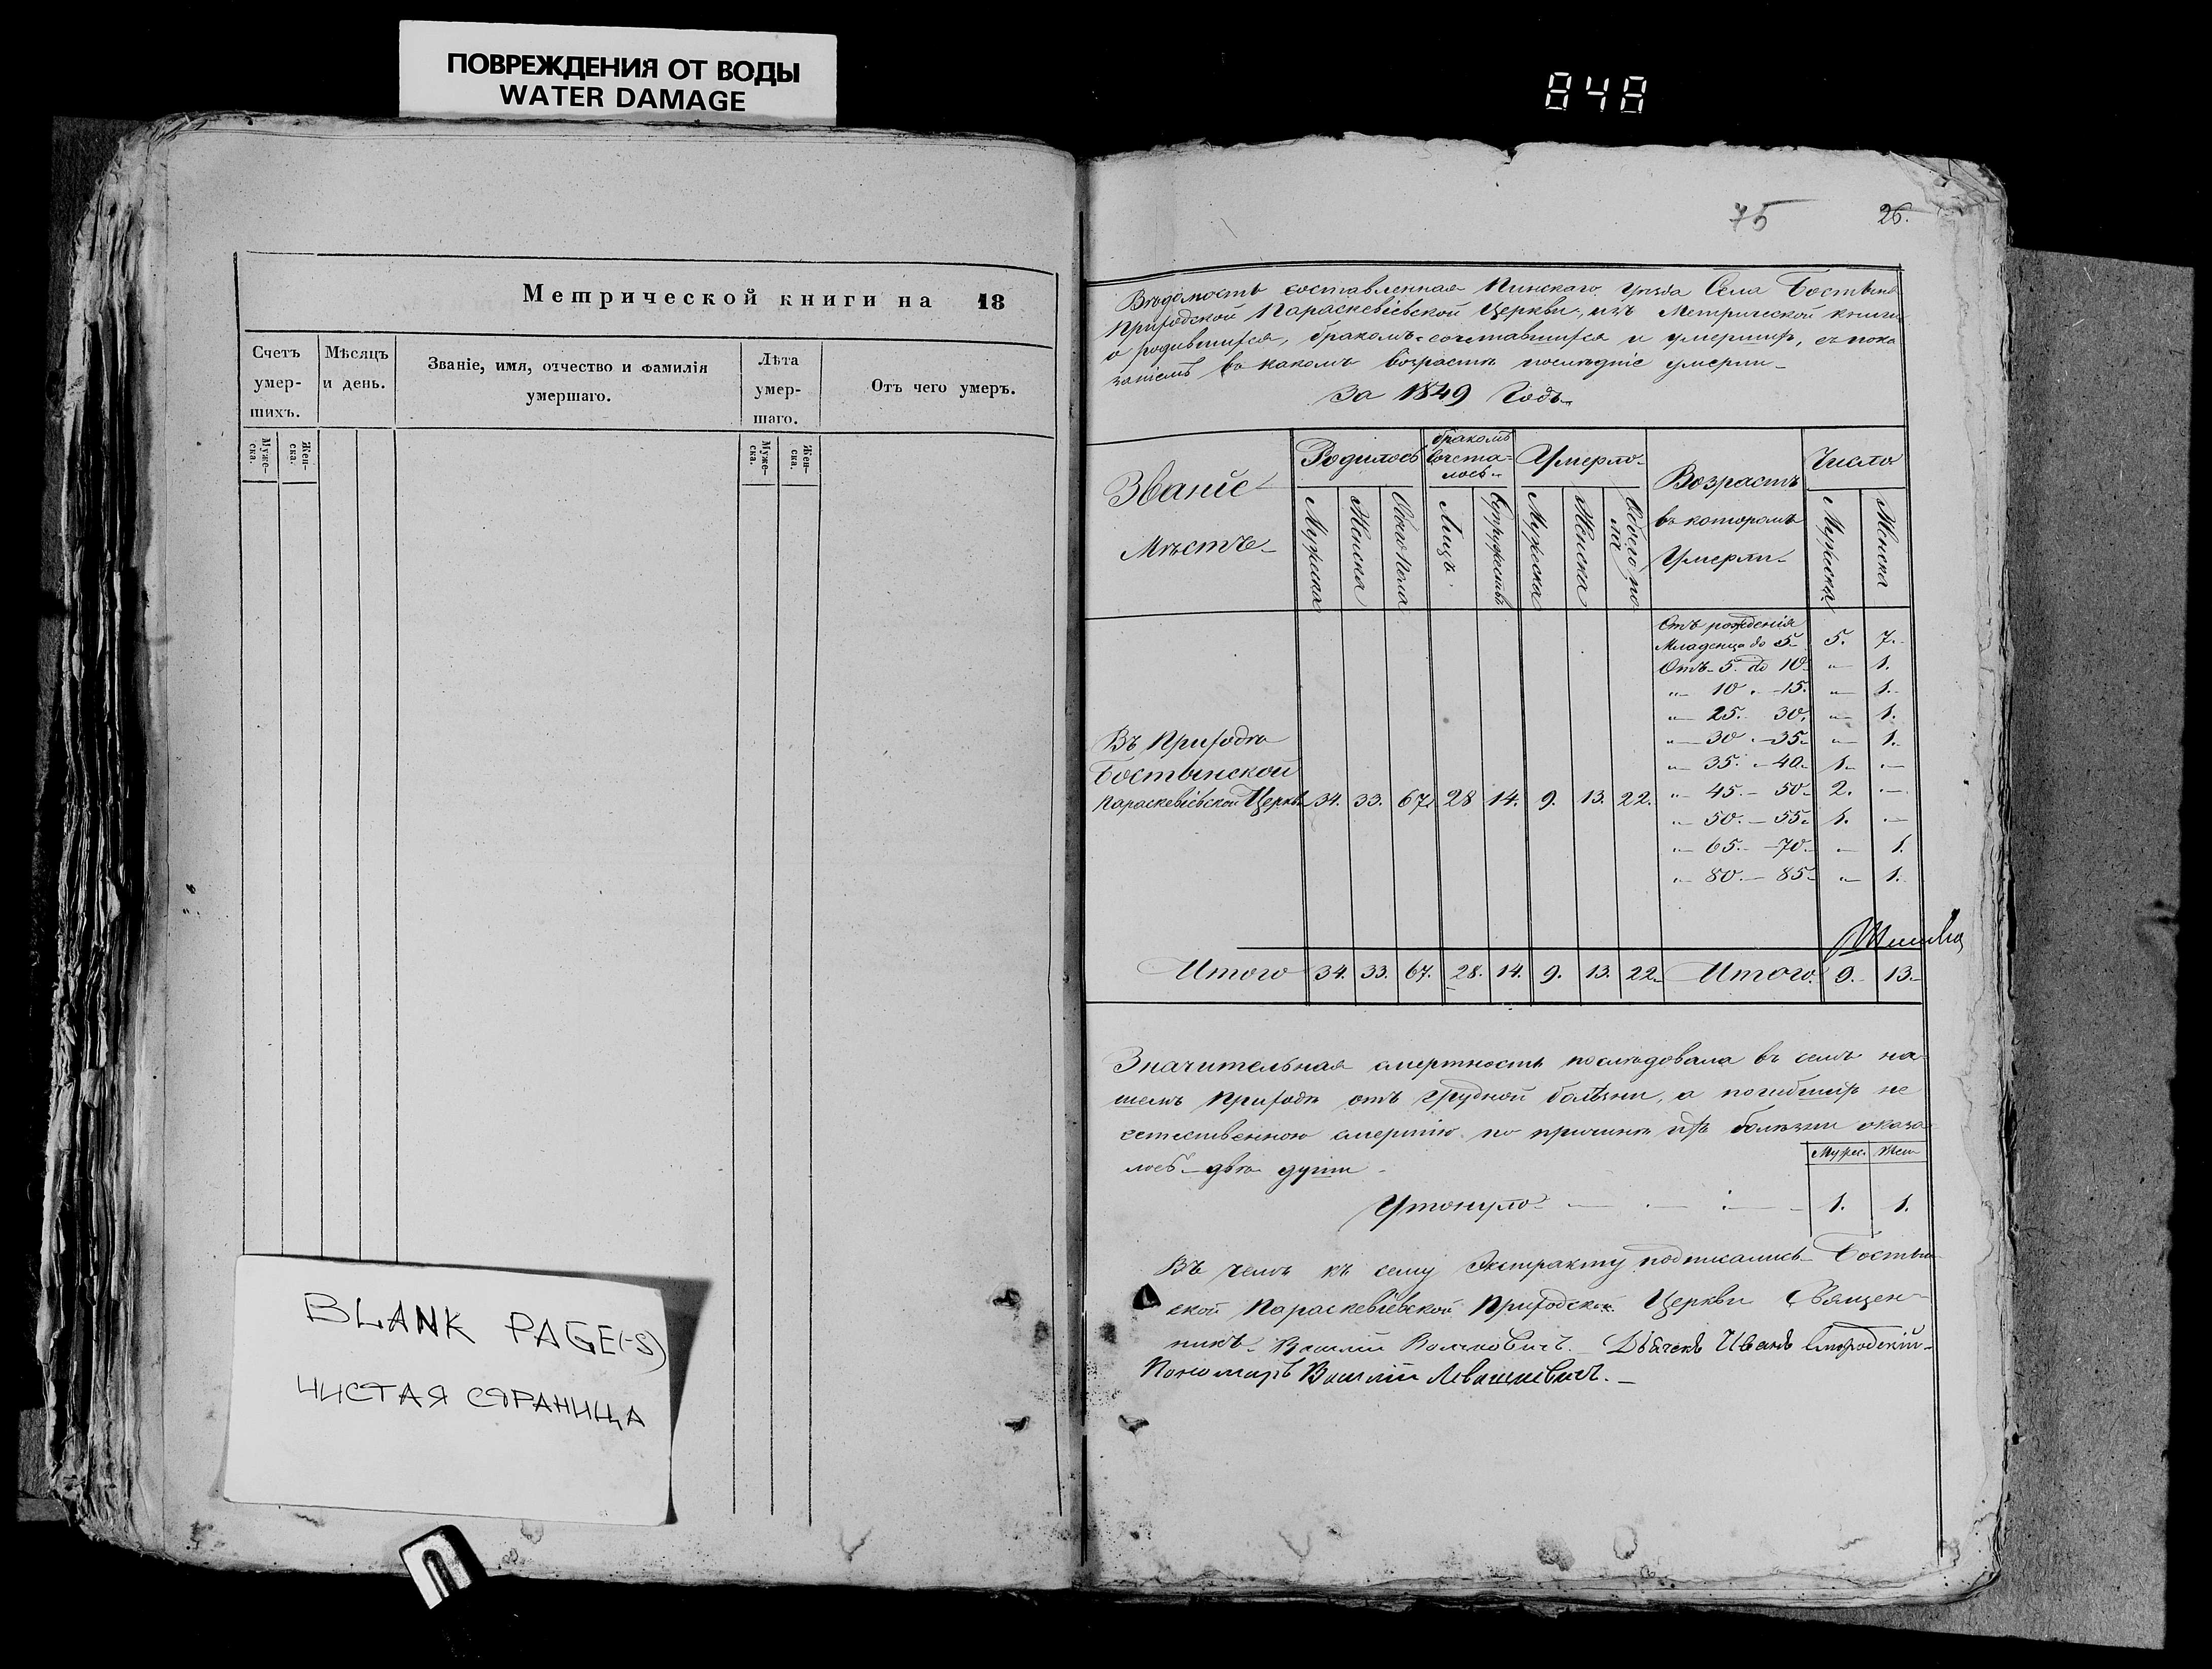 ПОВРЕЖДЕНИЯ ОТ ВОДЫ
WATER DAMAGE
848
Метрической книги на 18
Счетъ умер-шихъ.
Мѣсяцъ и день.
Званіе, имя, отчество и фамилія умершаго.
Лѣта умер-шаго.
Отъ чего умеръ.
Муже-ска.
Жен-ска.
Муже-ска.
Жен-ска.
BLANK PAGE(-S)
ЧИСТАЯ СТРАНИЦА
75 26.
Вѣдомость составленная Пинскаго Уѣзда Села Бостыня
Приходской Параскевіевской Церкви, изъ Метрической книги
о родившихся, бракомъ сочетавшихся и умершихъ, съ пока
заніемъ въ какомъ возрастѣ послѣдніе умерли
За 1849 Годъ
Званіе Мѣстъ
Родилось
бракомъ сочета-лось
Умерло
Возрастъ въ которомъ Умерли
Число
Мужеска Женска Обоего Пола Лицъ Супружествъ Мужеска Женска Обоего по ла Мужеска Женска
Отъ рожденія
Младенца до 5 5. 7.
Отъ 5 до 10 „ 1.
„ 10 . 15. „ 1.
„ 25. 30. „ 1.
„ 30 . 35. „ 1.
„ 35. 40. 1. „
„ 45. 50. 2. „
„ 50. 55. 1. „
„ 65. 70. „ 1.
„ 80. 85. „ 1.
Въ Приходѣ
Бостынской
Параскевіевской Церкви 34. 33. 67. 28 14. 9. 13. 22.
Итого 34. 33. 67. 28. 14. 9. 13. 22. Итого. 9. 13.
Значительная смертность послѣдовала въ семъ на
шемъ Приходѣ отъ грудной болѣзни, а погибшихъ не
естественною смертію по причинѣ ихъ болѣзни оказа
лось двѣ души
Мужес. Жен
Утонуло 1. 1.
Въ чемъ къ сему Экстракту подписались Бостын
ской Параскевіевской Приходской Церкви Священ
никъ Василій Волчковичъ. Дьячекъ Иванъ Смородскій
Пономарь Василій Левашкевичъ.